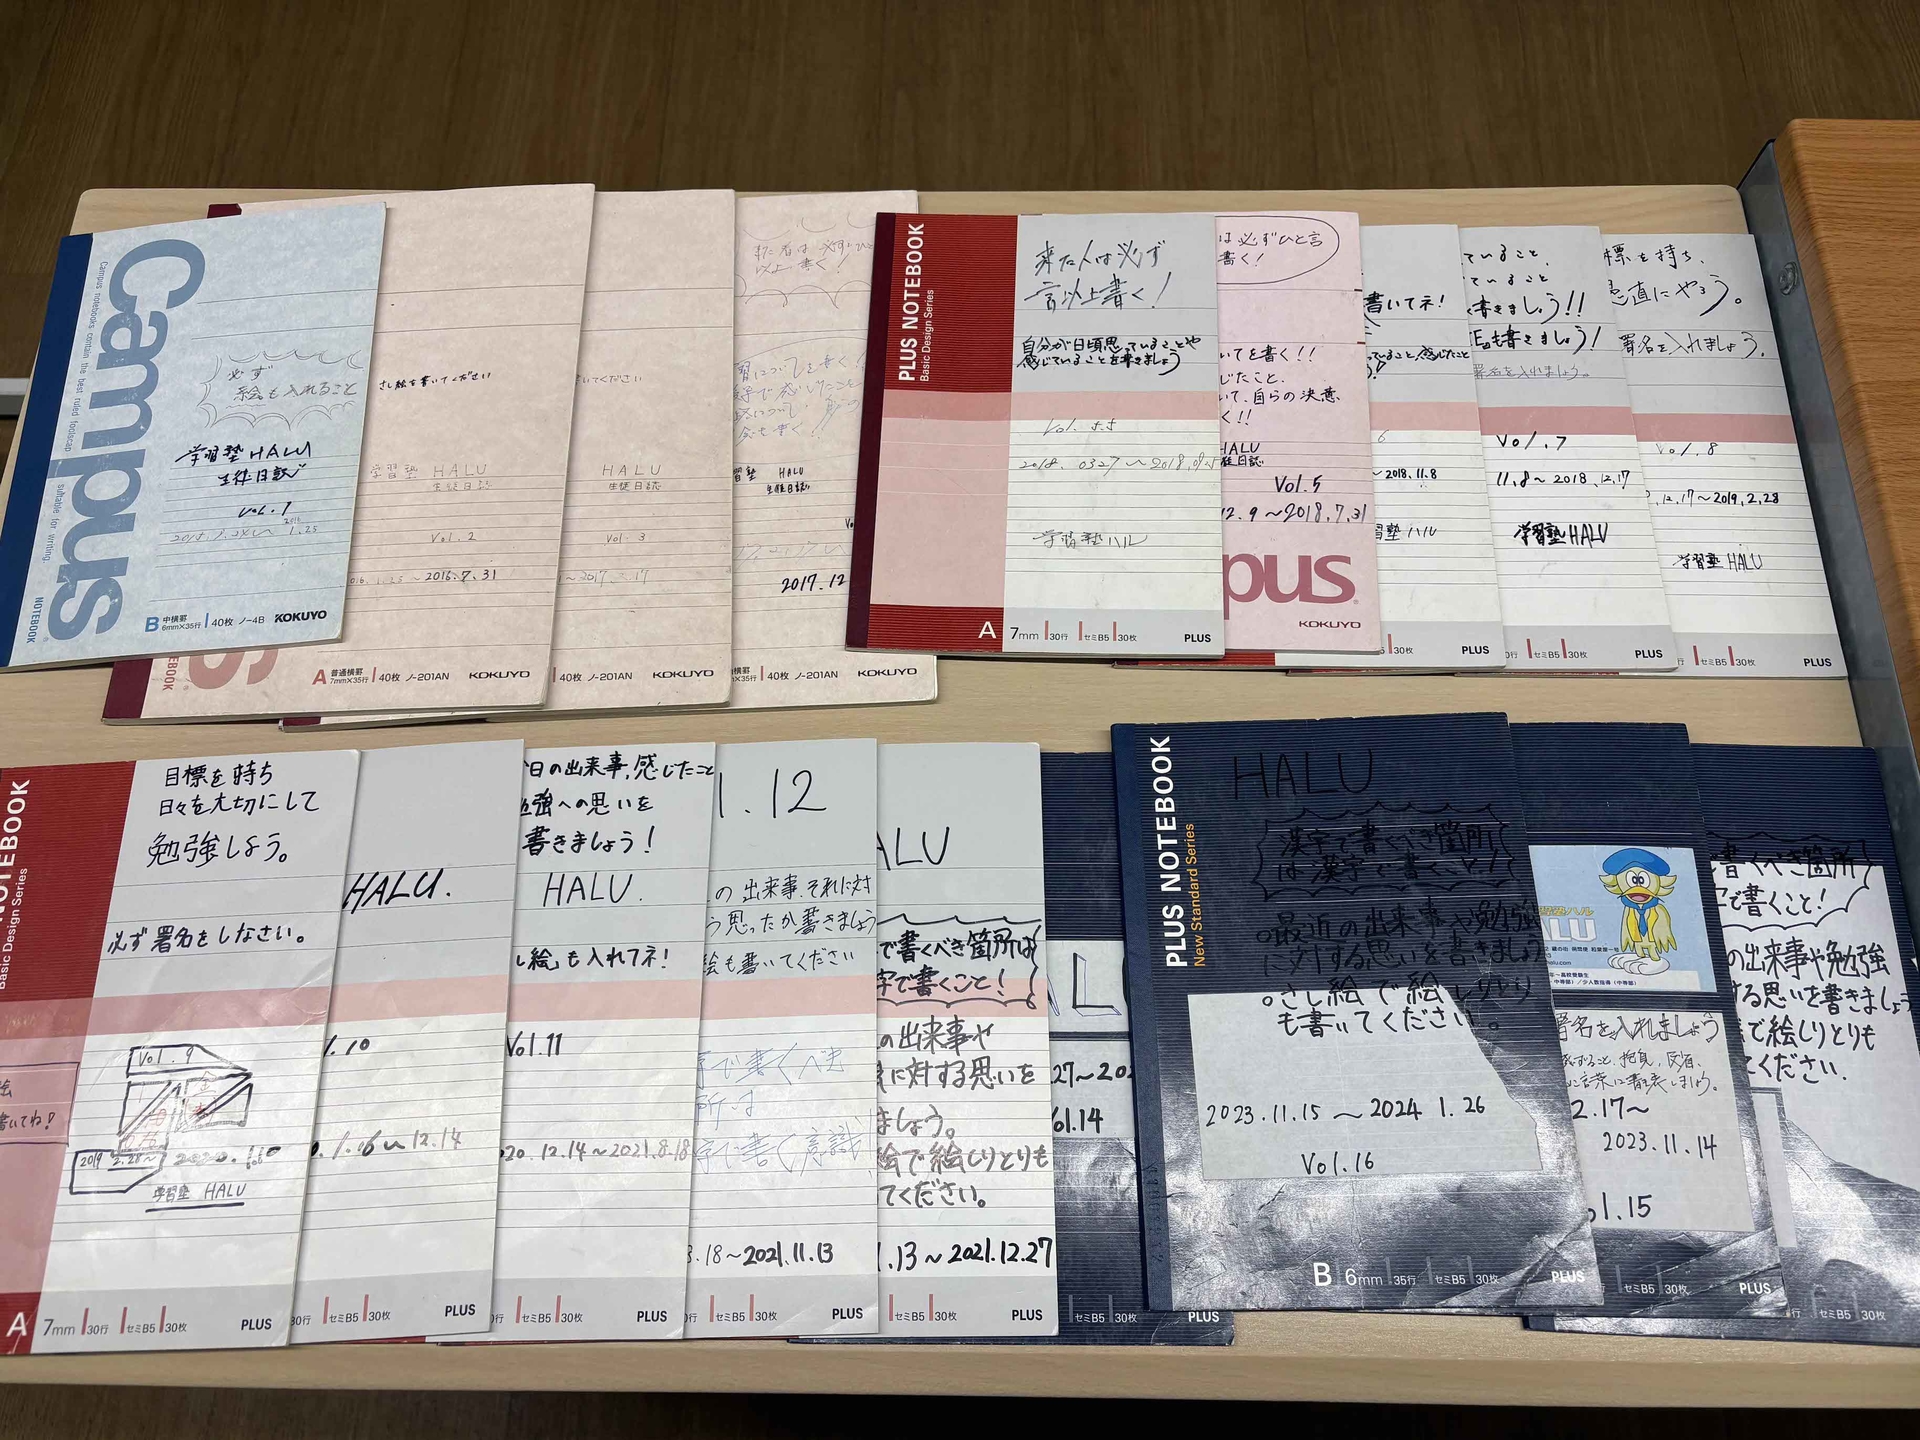 Campus
Campus notebooks contain the best ruled foolscap suitable for writing.
NOTEBOOK
必ず
絵も入れること
学習塾 HALU
生徒日誌
Vol.1
1.25
B 中横罫 6mm×35行 40枚 ノ-4B KOKUYO
さし絵を書いてください
学習塾 HALU
生徒日誌
Vol.2
~2016.7.31
A 普通横罫 7mm×35行 40枚 ノ-201AN KOKUYO
いてください
HALU
生徒日誌
Vol.3
40枚 ノ-201AN KOKUYO
また者は必ずひと
以上書く!
習塾 HALU
生徒日誌
2017.12
40枚 ノ-201AN KOKUYO
PLUS NOTEBOOK
Basic Design Series
来た人は必ず
一言以上書く!
自分が日頃思っていることや
感じていることを書きましょう
Vol.5.5
学習塾ハル
A 7mm 30行 セミB5 30枚 PLUS
は必ずひと言
書く!
いてを書く!!
じたこと.
いて、自らの決意、
く!!
HALU
徒日誌
Vol.5
12.9~2018.7.31
pus
KOKUYO
書いてネ!
6
~2018.11.8
習塾ハル
30枚 PLUS
ていること、
ていること
書きましょう!!
も書きましょう!
署名を入れましょう。
Vol.7
11.8~2018.12.17
学習塾HALU
セミB5 30枚 PLUS
標を持ち、
直にやろう。
署名を入れましょう。
Vol.8
12.17~2019.2.28
学習塾 HALU
セミB5 30枚 PLUS
NOTEBOOK
Basic Design Series
目標を持ち
日々を大切にして
勉強しよう。
必ず署名をしなさい。
絵
書いてね!
Vol.9
2019 2.28~
学習塾 HALU
A 7mm 30行 セミB5 30枚 PLUS
HALU.
.10
12.14
セミB5 30枚 PLUS
日の出来事,感じたこと
勉強への思いを
書きましょう!
HALU.
し絵も入れてネ!
Vol.11
20.12.14~2021.8.18
セミB5 30枚 PLUS
1.12
の出来事.それに対
う思ったか書きましょう
絵も書いてください
字で書くべき
所は
字で書く意識
8.18~2021.11.13
セミB5 30枚 PLUS
ALU
で書くべき箇所は
字で書くこと!
の出来事や
に対する思いを
ましょう。
絵で絵しりとりも
てください。
1.13~2021.12.27
セミB5 30枚 PLUS
27~202
セミB5 30枚 PLUS
PLUS NOTEBOOK
New Standard Series
HALU
漢字で書くべき箇所
は漢字で書く
最近の出来事や勉強
に対する思いを書きましょう
さし絵で絵しりとり
も書いてください。
2023.11.15~2024 1.26
Vol.16
B 6mm 35行 セミB5 30枚 PLUS
署名を入れましょう
2.17~
2023.11.14
ol.15
セミB5 30枚 PLUS
書くべき箇所
字で書くこと!
の出来事や勉強
する思いを書きましょう
で絵しりとりも
てください.
セミB5 30枚